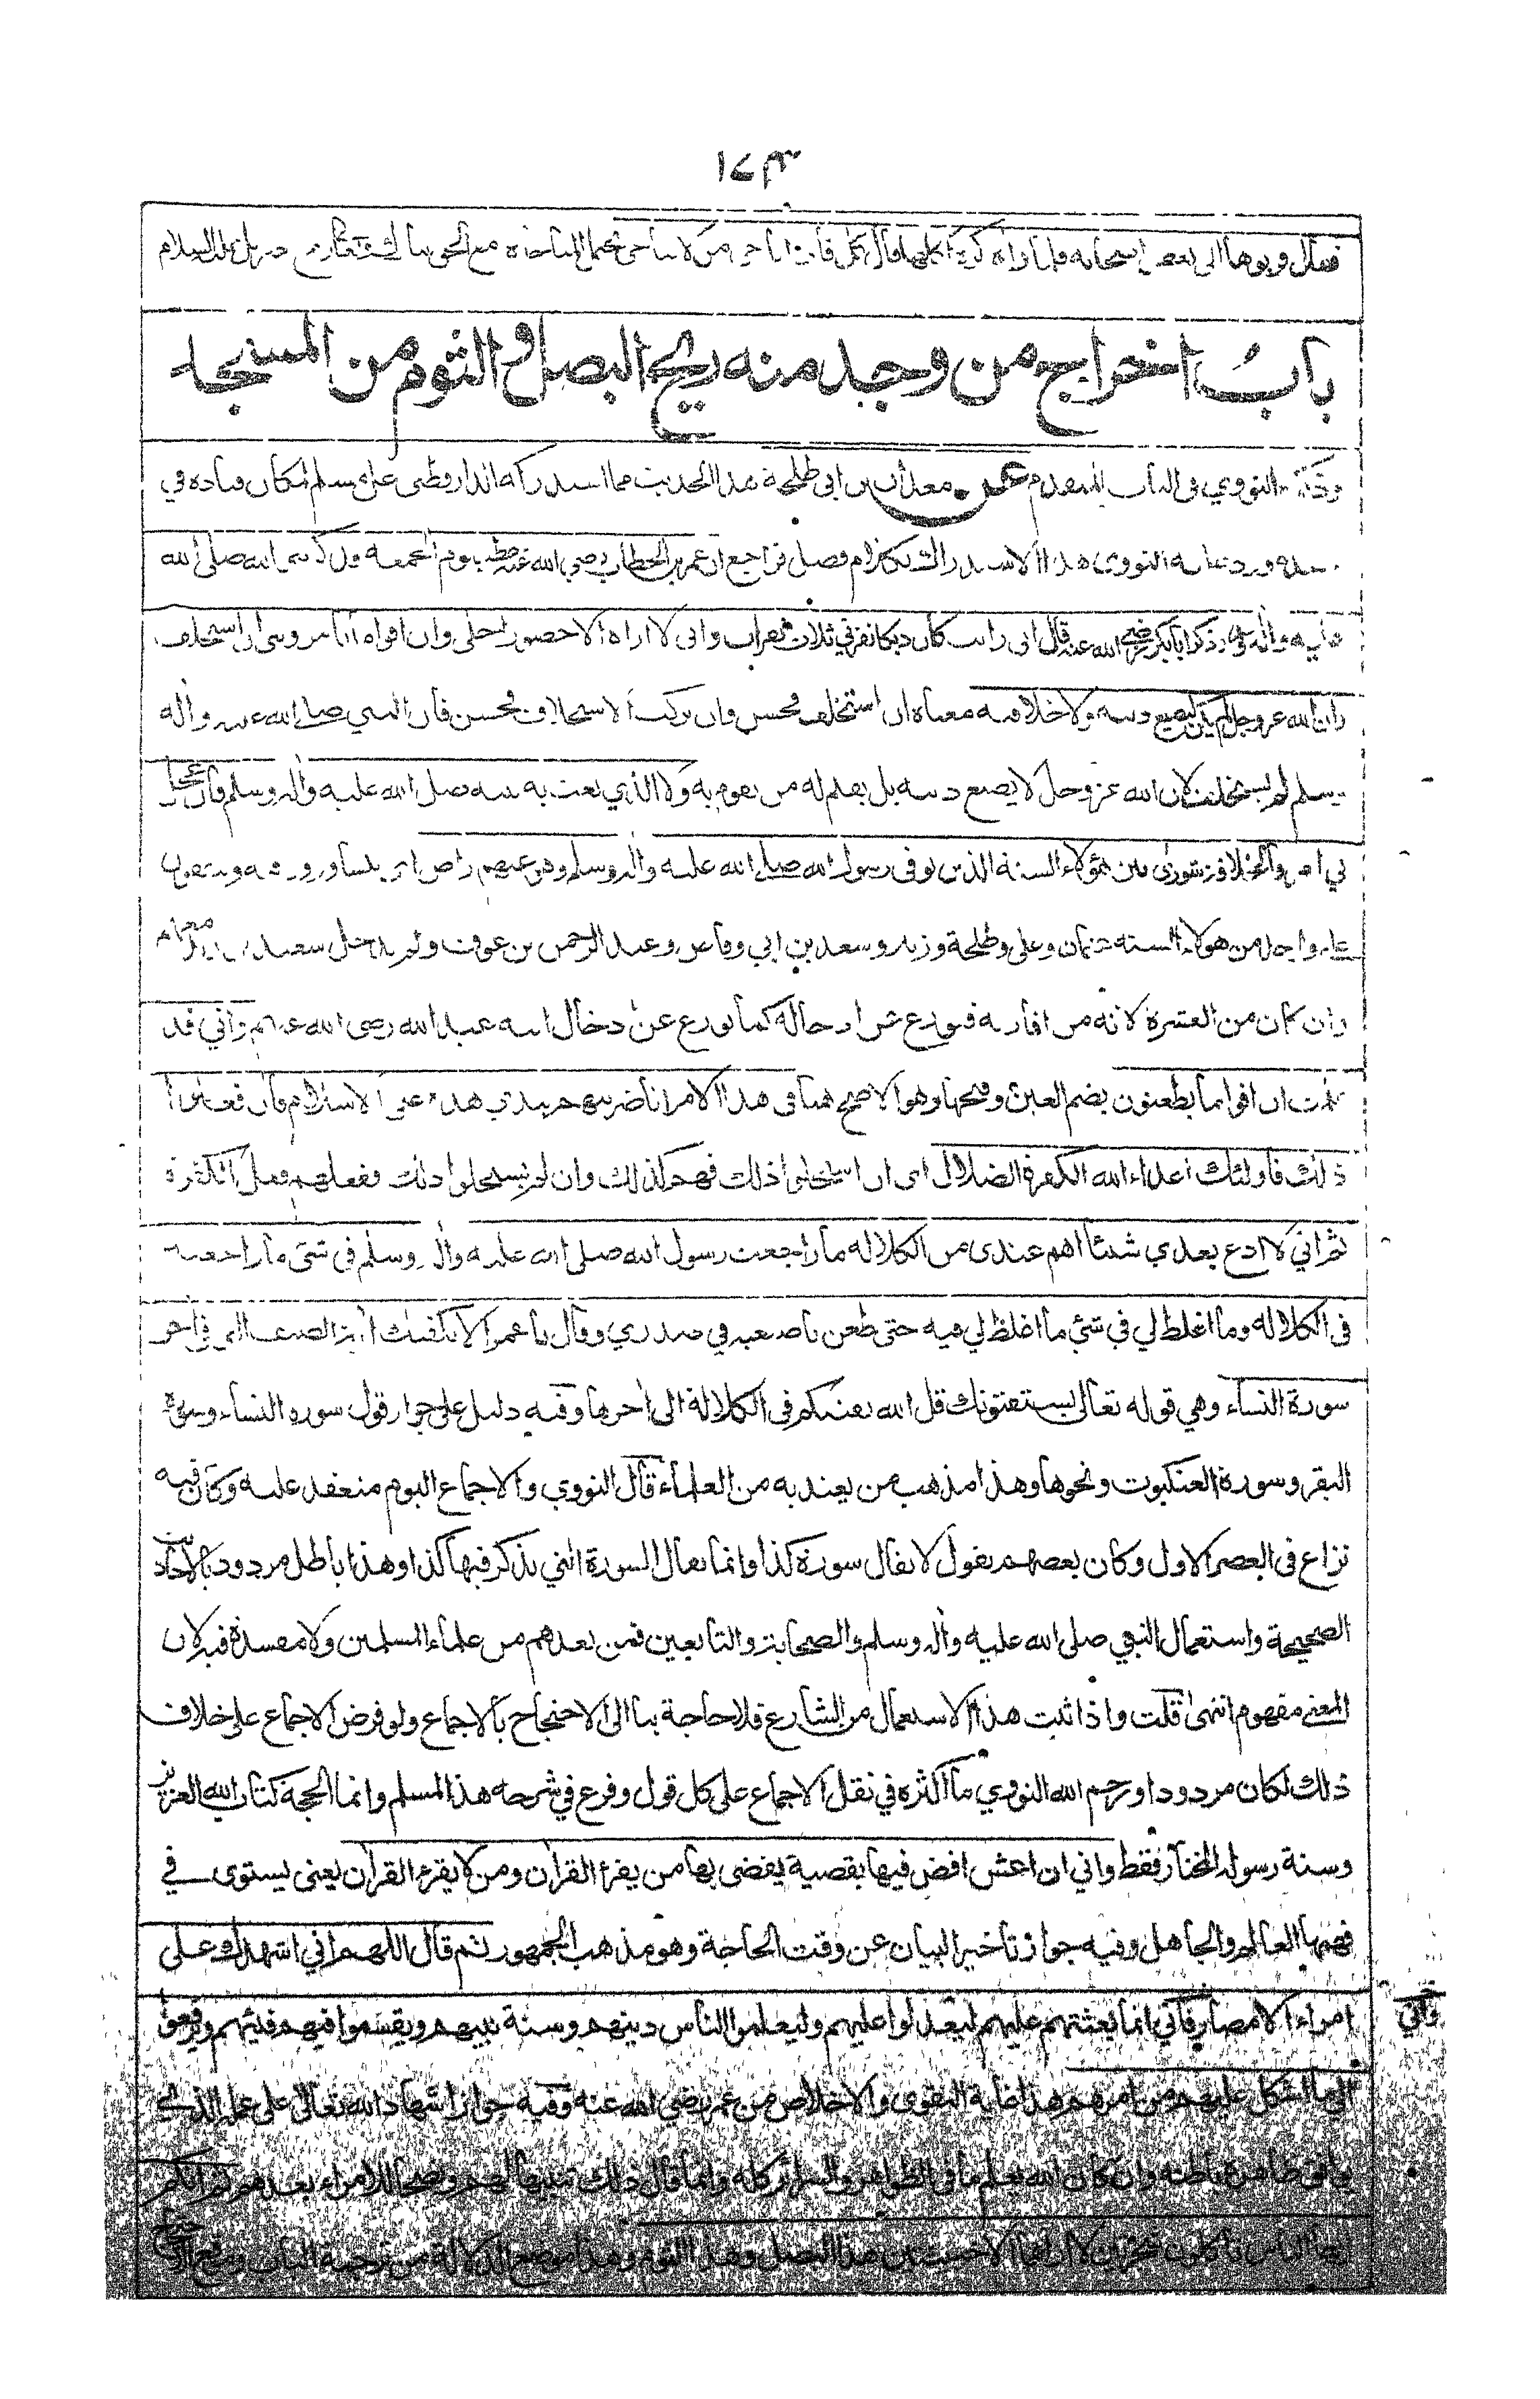 فقال قربوها الى بعض اصحابه فلما راه كره اكلها قال كل فاني اناجي من لا تناجي
باب اخراج من وجد منه ريح البصل والثوم من المسجد
النووي في الباب المتقدم عن معدان بن ابي طلحة هذا الحديث مما استدركه الدارقطني على مسلم فكان قتاده في
النووي هذا الاستدراك بكلام فصل فراجع ان عمر بن الخطاب رضي الله عنه خطب يوم الجمعه فذكر نبي الله صلى الله
عليه واله وسلم وذكر ابا بكر رضي الله عنه قال اني رايت كان ديكا نقرني ثلاث نقرات واني لا اراه الا حضور اجلي وان اقواما يامروني ان استخلف
وان الله عز وجل لم يكن ليضيع دينه ولا خلافته معناه ان استخلف فحسن وان تركت الاستخلاف فحسن فان النبي صلى الله عليه واله
وسلم لم يستخلف لان الله عز وجل لا يضيع دينه بل يقيم له من يقوم به ولا الذي بعث به نبيه صلى الله عليه واله وسلم فان عجل
بي امر فالخلافة شورى بين هؤلاء الستة الذين توفي رسول الله صلى الله عليه واله وسلم وهو عنهم راض
واحد من هولاء السته عثمان وعلي وطلحة وزبير وسعد بن ابي وقاص وعبد الرحمن بن عوف ولم يدخل سعيد معهم
وان كان من العشرة لانه من اقاربه فتورع عن ادخاله كما تورع عن ادخال ابنه عبد الله رضي الله عنهم واني قد
علمت ان اقواما يطعنون بضم العين وفتحها وهو الاصح هنا في هذا الامر انا ضربتهم بيدي هذه على الاسلام فان فعلوا
ذلك فاولئك اعداء الله الكفرة الضلال اي ان استحلوا ذلك فهم كذلك وان لم يستحلوا ذلك ففعلهم فعل الكفرة
ثم اني لا ادع بعدي شيئا اهم عندي من الكلاله ما راجعت رسول الله صلى الله عليه واله وسلم في شئ ما راجعته
في الكلاله وما اغلظ لي في شئ ما اغلظ لي فيه حتى طعن باصبعه في صدري وقال يا عمر الا تكفيك اية الصيف التي في اخر
سورة النساء وهي قوله تعالى يستفتونك قل الله يفتيكم في الكلالة الى اخرها وفيه دليل على جواز قول سوره النساء وسورة
البقر وسورة العنكبوت ونحوها وهذا مذهب من يعتد به من العلماء قال النووي والاجماع اليوم منعقد عليه وكان فيه
نزاع في العصر الاول وكان بعضهم يقول لا يقال سورة كذا وانما يقال السورة التي يذكر فيها كذا وهذا باطل مردود بالاحاديث
الصحيحة واستعمال النبي صلى الله عليه واله وسلم والصحابة والتابعين فمن بعدهم من علماء المسلمين ولا مفسدة فيه لان
المعنى مفهوم انتهى قلت واذا ثبت هذا الاستعمال من الشارع فلا حاجة بنا الى الاحتجاج بالاجماع ولو فرض الاجماع على خلاف
ذلك لكان مردودا ورحم الله النووي ما اكثره في نقل الاجماع على كل قول وفرع في شرحه هذا لمسلم وانما الحجة كتاب الله العزيز
وسنة رسوله المختار فقط واني ان اعش اقض فيها بقضية يقضي بها من يقرء القران ومن لا يقرء القران يعني يستوي في
فهمها العالم والجاهل وفيه جواز تاخير البيان عن وقت الحاجة وهو مذهب الجمهور ثم قال اللهم اني اشهدك على
امراء الامصار فاني انما بعثتهم عليهم ليعدلوا عليهم وليعلموا الناس دينهم وسنة نبيهم ويقسموا فيهم فيئهم ويرفعوا
الي ما اشكل عليهم من امرهم هذا غاية التقوى والاخلاص من عمر رضي الله عنه وفيه جواز اشهاد الله تعالى على عمله الذي
ظاهره باطنه وان كان الله يعلم ما في الظواهر والسرائر كله وانما قال ذلك تنبيها لهم ونصحا للامراء بعدهم ثم انكم
ايها الناس تاكلون شجرتين لا اراهما الا خبيثتين هذا البصل وهذا الثوم وهذا موضع الدلالة من ترجمة الباب